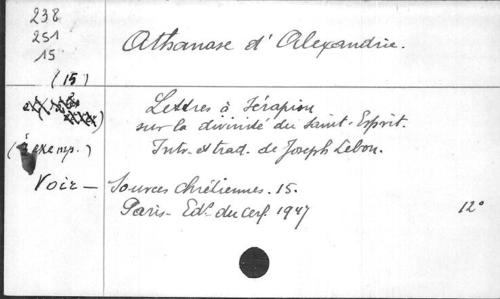 238
251
15
(15)
Athanase d'Alexandrie.
Lettres à Sérapion
sur la divinité du Saint-Esprit.
(2 exemp.)
Intr. et trad. de Joseph Lebon.
Voir — Sources chrétiennes. 15.
Paris - Edn. du Cerf. 1947
12°